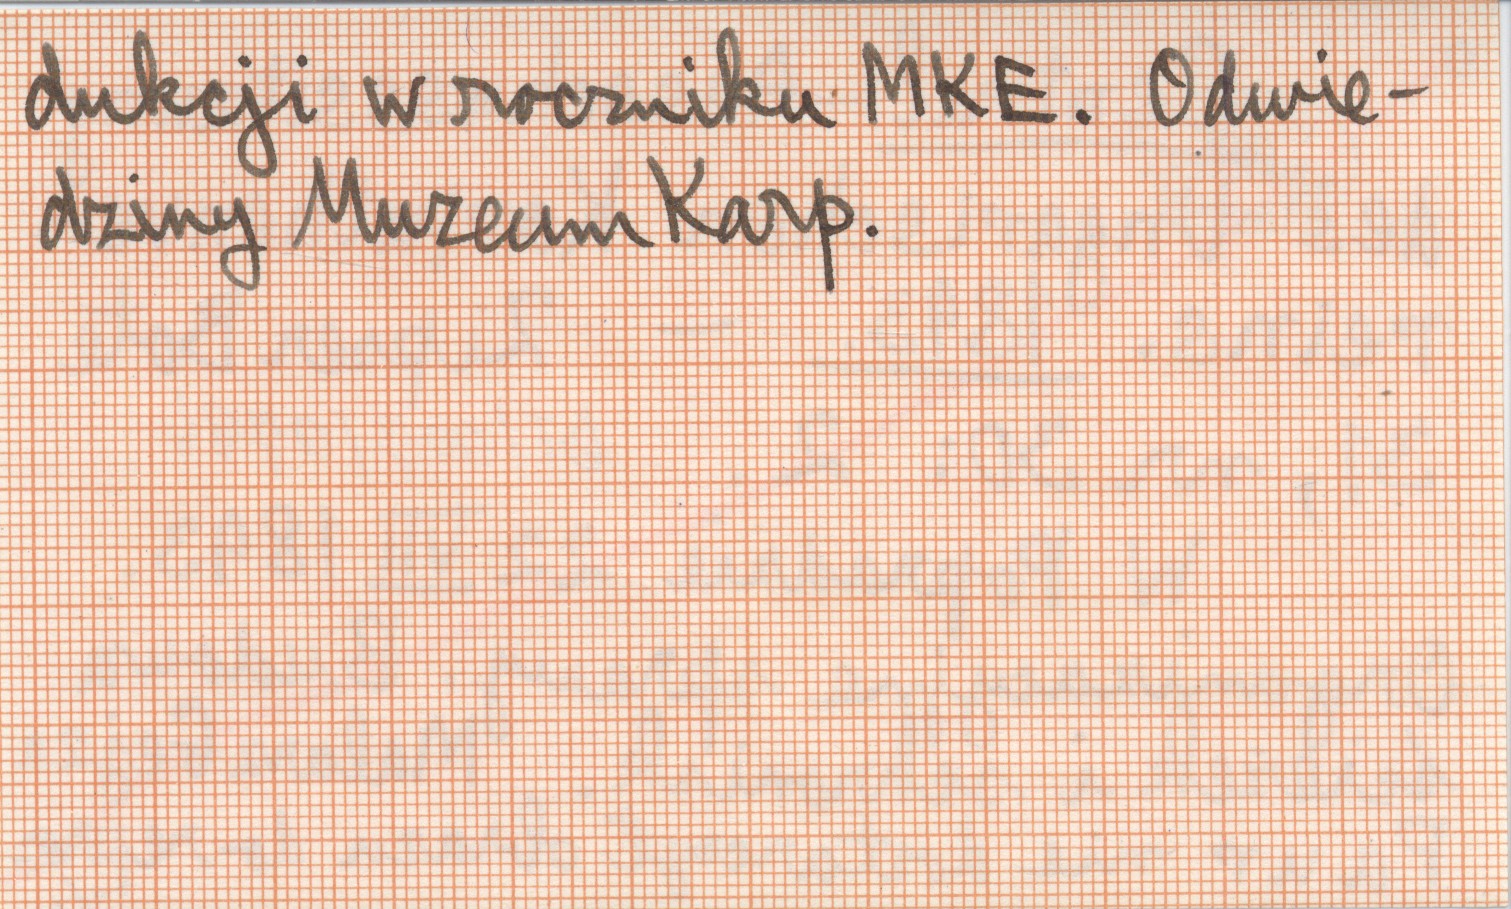 dukcji w roczniku MKE. Odwie-
dziny Muzeum Karp.